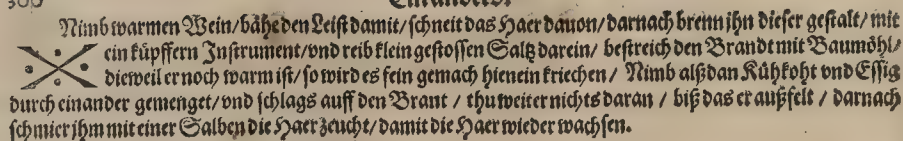 Nimb warmen Wein/ bähe den Leist damit/ schneit das Haer dauon/ darnach brenn ihn dieser gestalt/ mit
ein küpffern Instrument/ vnd reib klein gestossen Saltz darein/ bestreich den Brandt mit Baumöhl/
dieweil er noch warm ist/ so wird es fein gemach hienein kriechen/ Nimb alßdan Kühkoht vnd Essig
durch einander gemenget/ vnd schlags auff den Brant / thu weiter nichts daran / biß das er außfelt / darnach
schmier ihm mit einer Salben die Haer zeucht/ damit die Haer wieder wachsen.